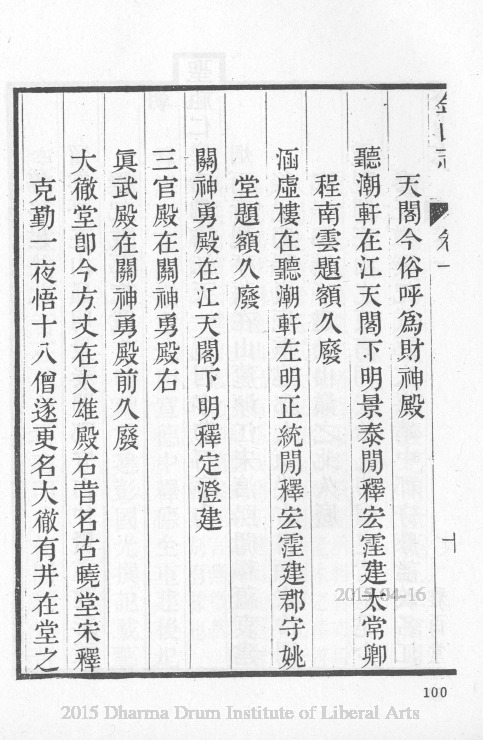 金山志 卷一 十
天閣今俗呼爲財神殿
聽潮軒在江天閣下明景泰閒釋宏霔建太常卿
程南雲題額久廢
涵虛樓在聽潮軒左明正統閒釋宏霔建郡守姚
堂題額久廢
關神勇殿在江天閣下明釋定澄建
三官殿在關神勇殿右
眞武殿在關神勇殿前久廢
大徹堂卽今方丈在大雄殿右昔名古曉堂宋釋
克勤一夜悟十八僧遂更名大徹有井在堂之
2015-04-16
100
2015 Dharma Drum Institute of Liberal Arts